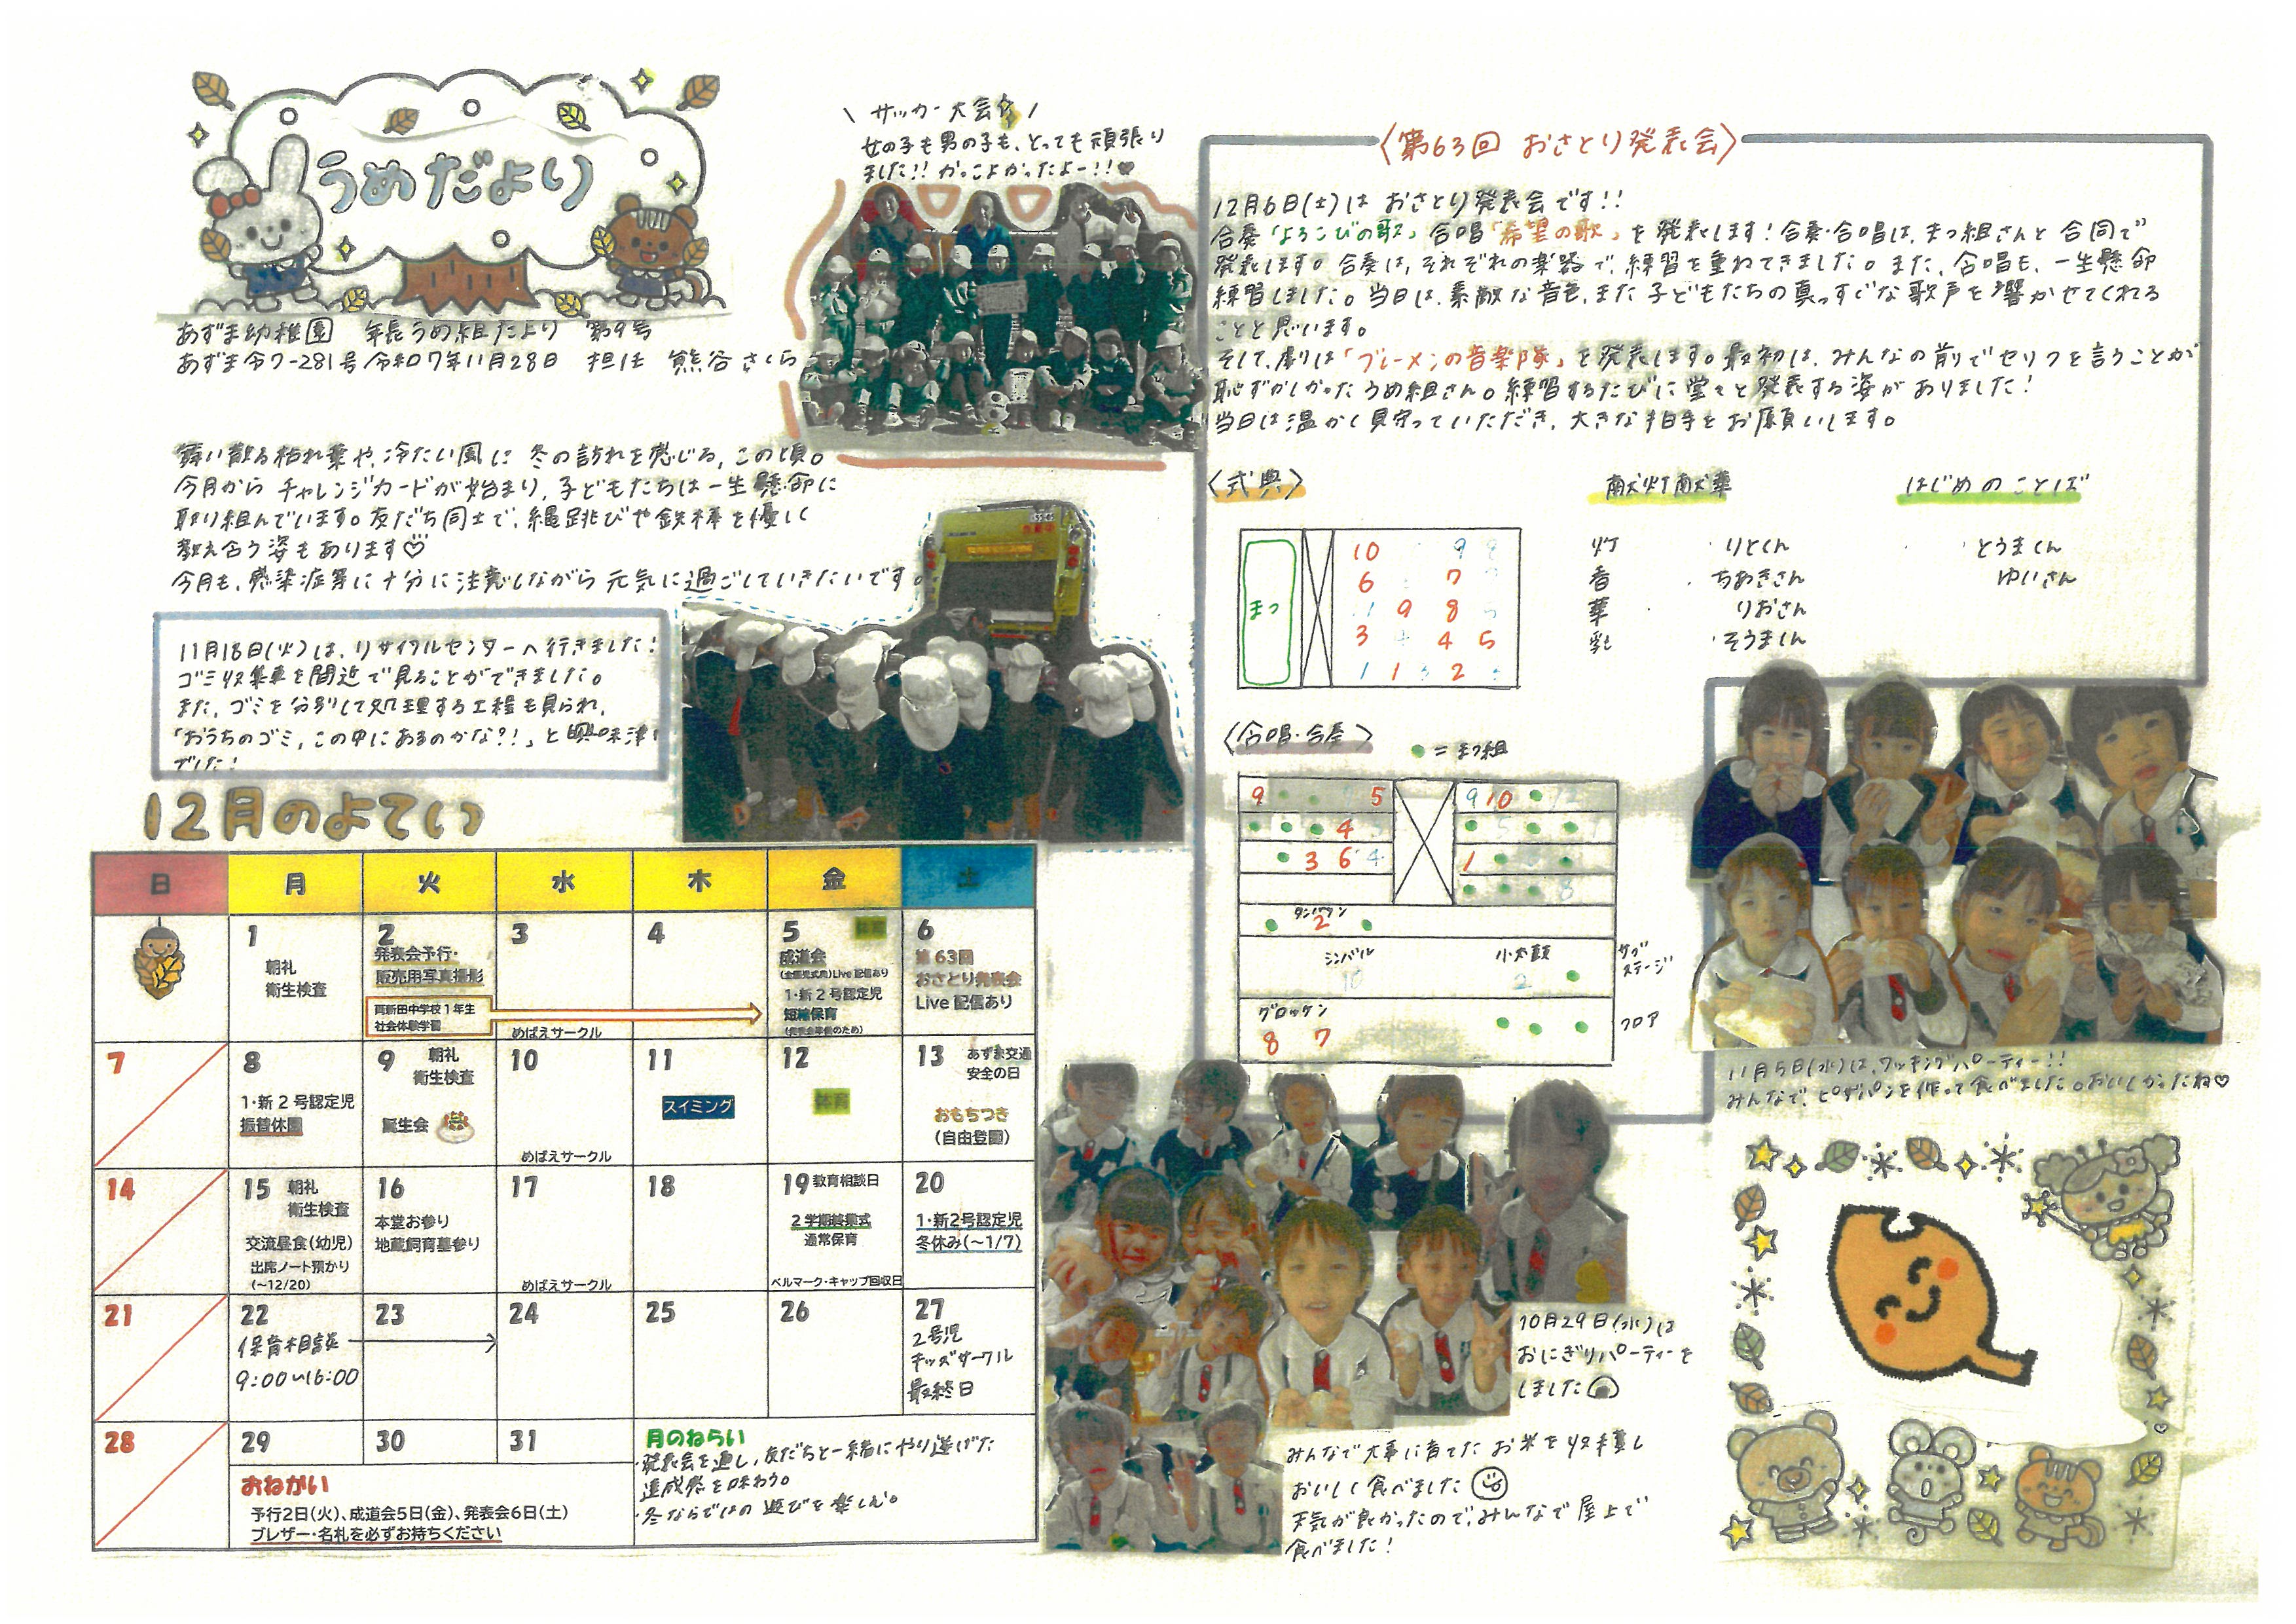 うめだより
あずま幼稚園 年長うめ組だより 第9号
あずま令7-281号 令和7年11月28日 担任 熊谷さくら
舞い散る枯れ葉や、冷たい風に 冬の訪れを感じる、この頃。
今月から チャレンジカードが始まり、子どもたちは一生懸命に
取り組んでいます。友だち同士で、縄跳びや鉄棒を優しく
教え合う姿もあります♡
今月も、感染症等に十分に注意しながら 元気に過ごしていきたいです。
\ サッカー大会 /
女の子も男の子も、とっても頑張り
ました!! かっこよかったよー!!♥
11月18日(火)は、リサイクルセンターへ行きました!
ゴミ収集車を間近で見ることができました。
また、ゴミを分別して処理する工程も見られ、
「おうちのゴミ、この中にあるのかな?!」と興味津
でした!
12月のよてい
日 月 火 水 木 金 土
1 朝礼 衛生検査
2 発表会予行・販売用写真撮影
社会体験学習
3 めばえサークル
4
5 体育 成道会
Live配信あり
1・新2号認定児
短縮保育
6 第63回 おさとり発表会 Live配信あり
7
8 1・新2号認定児 振替休園
9 朝礼 衛生検査 誕生会
10 めばえサークル
11 スイミング
12 体育
13 あずま交通安全の日 おもちつき (自由登園)
14
15 朝礼 衛生検査 交流昼食(幼児) 出席ノート預かり (~12/20)
16 本堂お参り 地蔵飼育墓参り
17 めばえサークル
18
19 教育相談日 2学期終業式 通常保育 ベルマーク・キャップ回収日
20 1・新2号認定児 冬休み(~1/7)
21
22 保育相談 9:00~16:00
23
24
25
26
27 2号児 キッズサークル 最終日
28
29
30
31
おねがい
予行2日(火)、成道会5日(金)、発表会6日(土)
ブレザー・名札を必ずお持ちください
月のねらい
・発表会を通し、友だちと一緒にやり遂げた
達成感を味わう。
・冬ならではの遊びを楽しむ。
〈第63回 おさとり発表会〉
12月6日(土)は おさとり発表会です!!
合奏「よろこびの歌」合唱「希望の歌」を発表します!合奏・合唱は、まつ組さんと合同で
発表します。合奏は、それぞれの楽器で、練習を重ねてきました。また、合唱も、一生懸命
練習しました。当日は、素敵な音色、また子どもたちの真っすぐな歌声を響かせてくれる
ことと思います。
そして、劇は「ブレーメンの音楽隊」を発表します。最初は、みんなの前でセリフを言うことが
恥ずかしかったうめ組さん。練習するたびに堂々と発表する姿がありました!
当日は温かく見守っていただき、大きな拍手をお願いします。
〈式典〉
まつ
10 9
6 7
1 9 8
3 4 5
1 1 2
献灯献華
灯 ・りとくん
香 ・ちあきさん
華 ・りおさん
乳 ・そうまくん
はじめのことば
・とうまくん
ゆいさん
〈合唱・合奏〉
●=まつ組
9 5 9 10
4
3 6 4 1
タンバリン
2
シンバル 小太鼓
10 2
サブステージ
グロッケン
8 7
フロア
11月5日(水)は、クッキングパーティー!!
みんなで、ピザパンを作って食べました。おいしかったね♡
10月29日(水)は
おにぎりパーティーを
しました
みんなで大事に育てた お米を収穫し
おいしく食べました
天気が良かったので、みんなで屋上で
食べました!